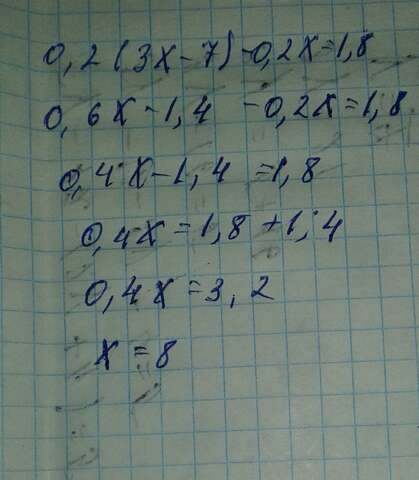 0,2(3x-7)-0,2x=1,8
0,6x-1,4 -0,2x=1,8
0,4x-1,4 =1,8
0,4x=1,8+1,4
0,4x=3,2
x=8